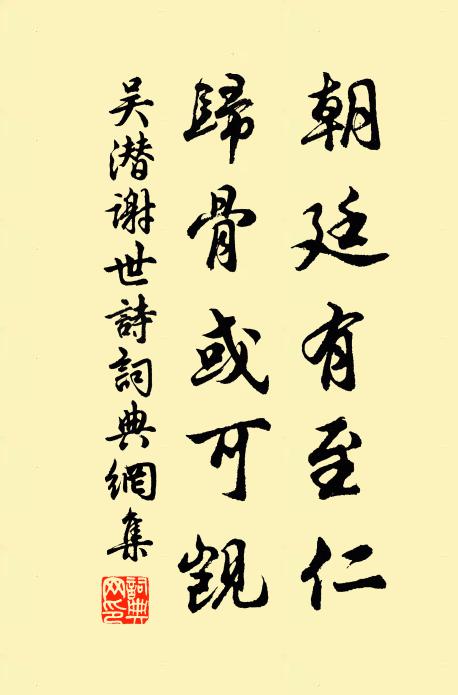 朝廷有至仁
歸骨或可覬
吴潜谢世詩詞典網集
詞典网印